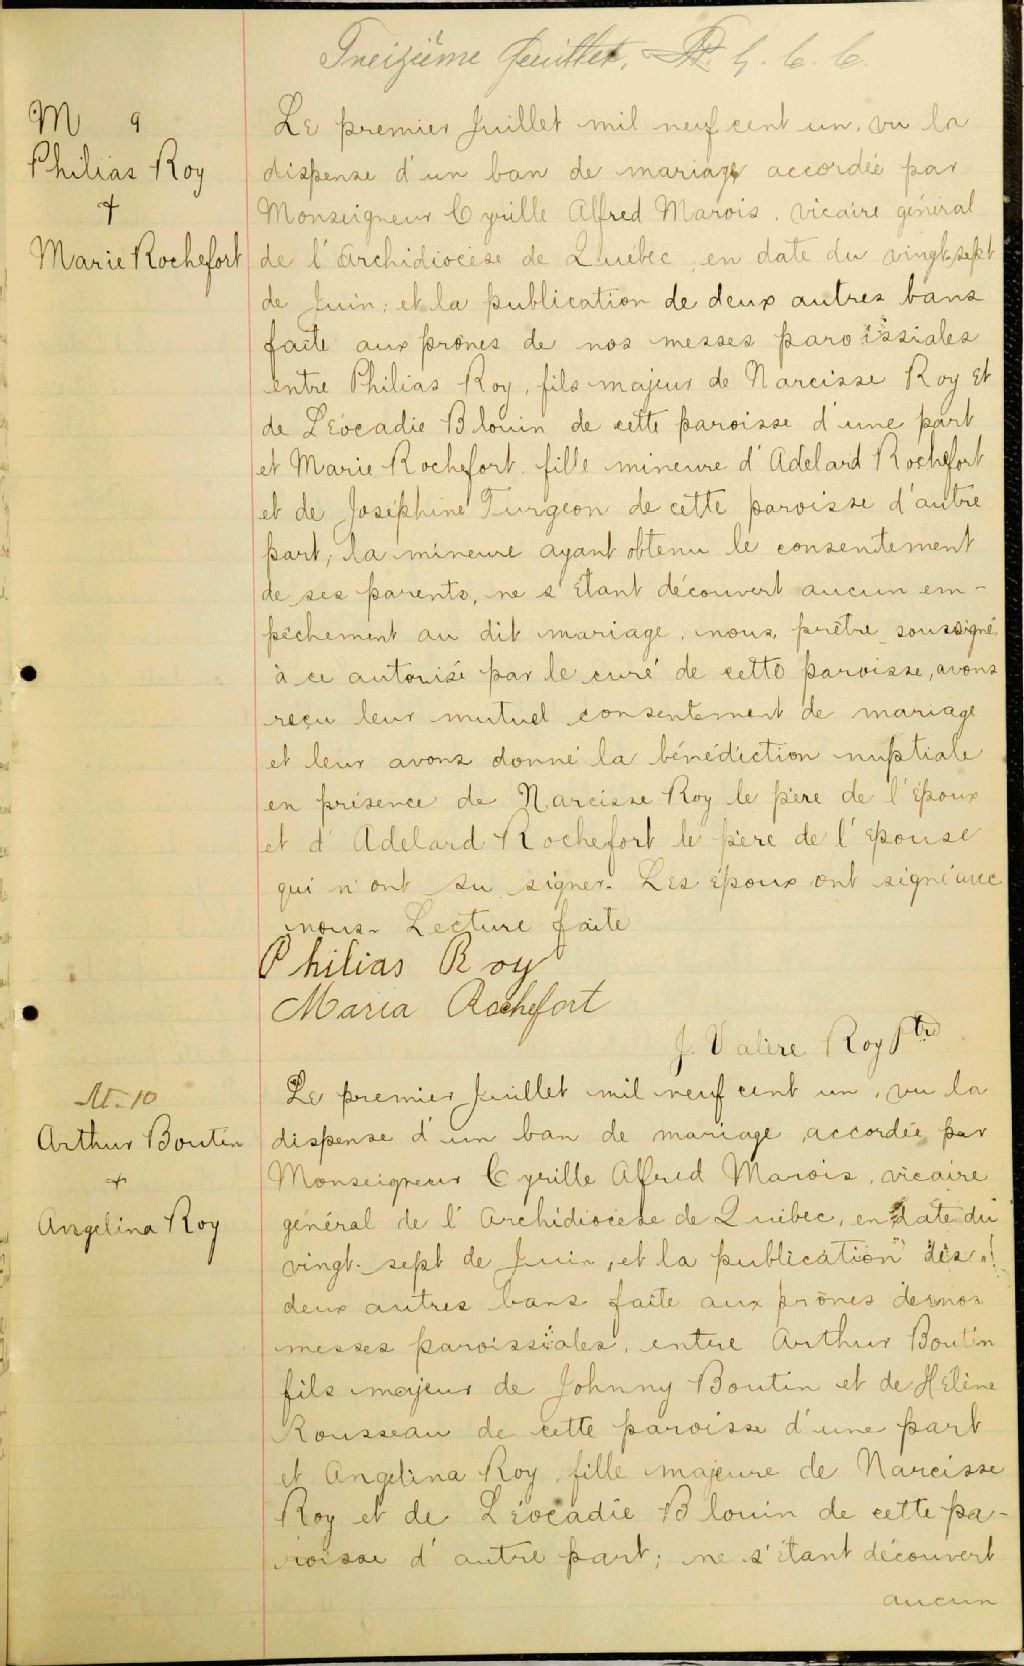 Treizième feuillet. G. C. C.
M 9
Philias Roy
+
Marie Rochefort
Le premier Juillet mil neuf cent un, vu la
dispense d'un ban de mariage accordée par
Monseigneur Cyrille Alfred Marois, vicaire général
de l'Archidiocèse de Québec, en date du vingt-sept
de Juin, et la publication de deux autres bans
faite aux prônes de nos messes paroissiales
entre Philias Roy, fils majeur de Narcisse Roy et
de Léocadie Blouin de cette paroisse d'une part
et Marie Rochefort fille mineure d'Adélard Rochefort
et de Joséphine Turgeon de cette paroisse d'autre
part; la mineure ayant obtenu le consentement
de ses parents, ne s'étant découvert aucun em-
pêchement au dit mariage, nous, prêtre soussigné,
à ce autorisé par le curé de cette paroisse, avons
reçu leur mutuel consentement de mariage
et leur avons donné la bénédiction nuptiale
en présence de Narcisse Roy le père de l'époux
et d'Adelard Rochefort le père de l'épouse
qui n'ont su signer. Les époux ont signé avec
nous. Lecture faite
Philias Roy
Maria Rochefort
J. Valère Roy Ptre
M-10
Arthur Boutin
+
Angelina Roy
Le premier Juillet mil neuf cent un, vu la
dispense d'un ban de mariage, accordée par
Monseigneur Cyrille Alfred Marois, vicaire
général de l'Archidiocèse de Québec, en date du
vingt-sept de Juin, et la publication des
deux autres bans faite aux prônes de nos
messes paroissiales, entre Arthur Boutin
fils majeur de Johnny Boutin et de Hélène
Rousseau de cette paroisse d'une part
et Angelina Roy, fille majeure de Narcisse
Roy et de Léocadie Blouin de cette pa-
roisse d'autre part; ne s'étant découvert
aucun